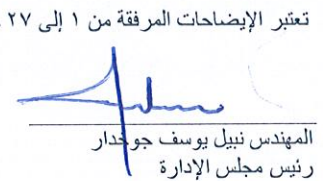 تعتبر الإيضاحات المرفقة من ١ إلى ٢٧
المهندس نبيل يوسف جوخدار
رئيس مجلس الإدارة